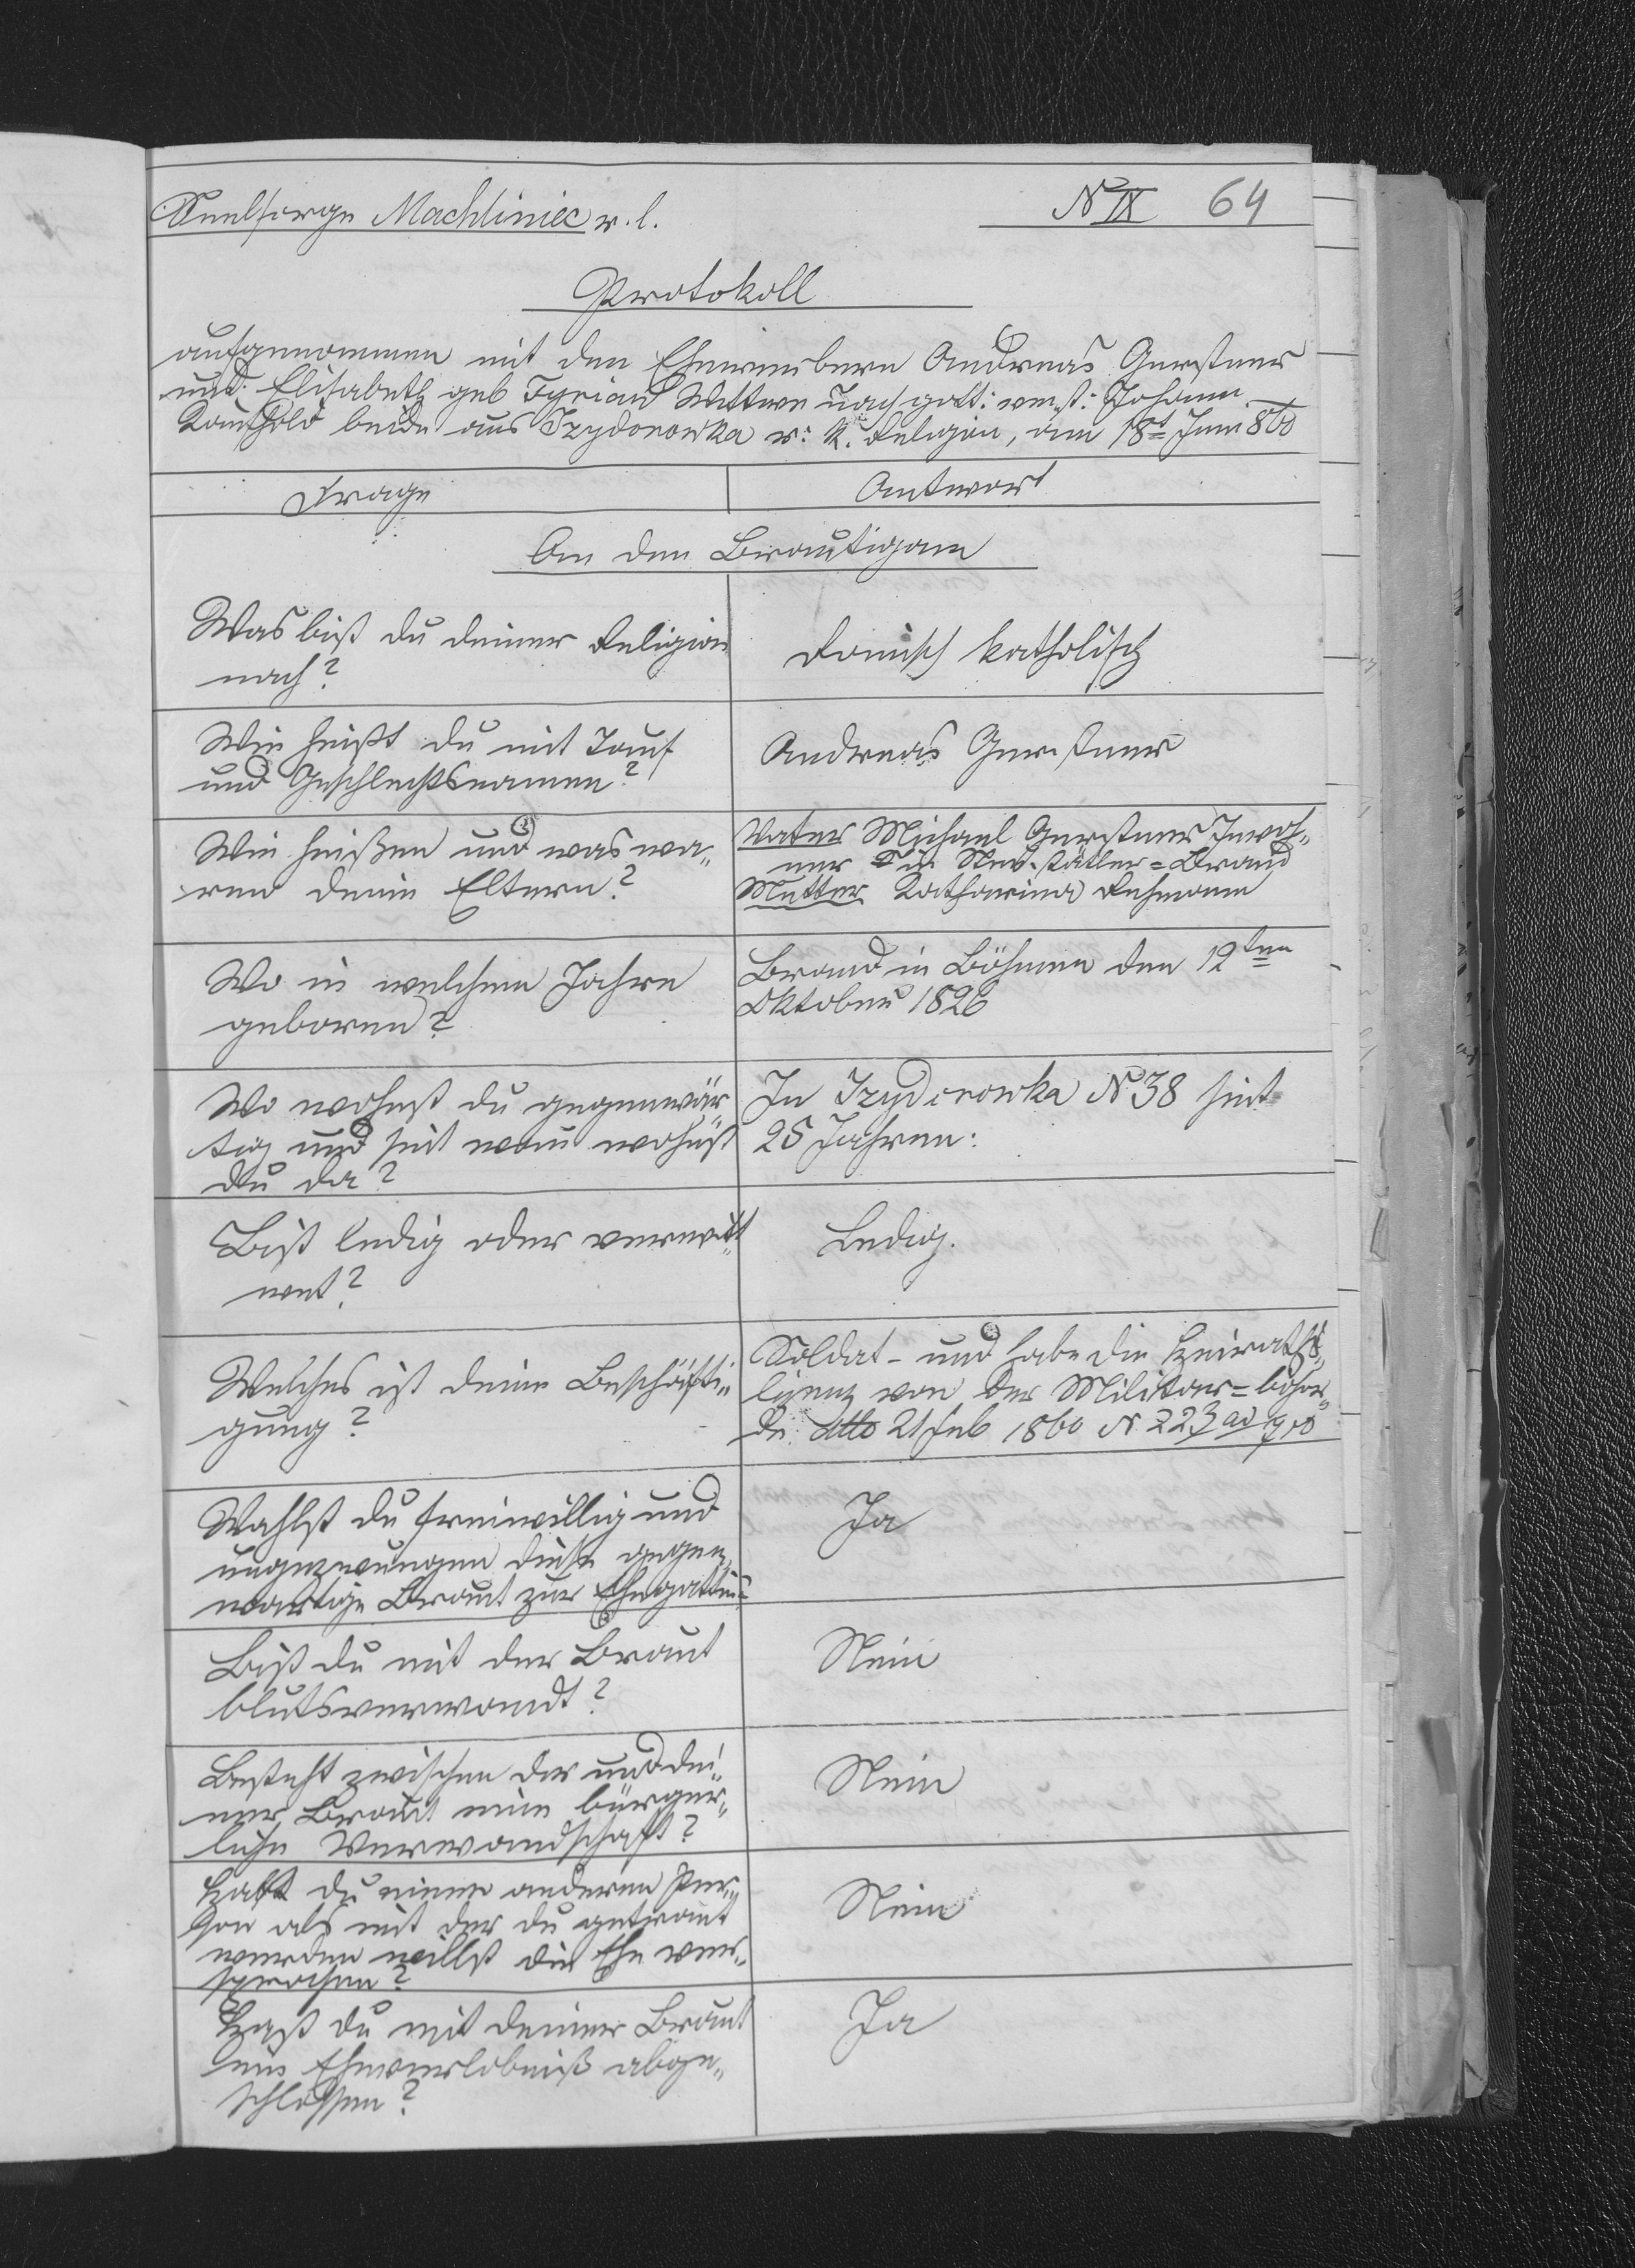 Seelsorge Machliniec r. l.
N IX 64
Protokoll
aufgenommen mit den Ehewerbern Andreas Gerstner
und Elisabeth geb Tyrian Wittwe nach gott: verst: Johann
beide aus Izydorowka r: k. Religion, am 18t Juni 860
Frage Antwort
An den Brautigam
Was bist du deiner Religion
nach?
Römisch katholisch
Wie heißt du mit Tauf
und Geschlechtsnamen?
Andreas Gerstner
Wie heißen und was wa„
ren deine Eltern?
Vater Michael Gerstner Inwoh„
ner in Brand
Mutter Katharina
Wo in welchem Jahre
geboren?
Brand in Böhmen den 12ten
Oktober 1826
Wo wohnst du gegenwär„
tig und seit wann wohnst
du da?
In Izydorowka N 38 seit
25 Jahren:
Bist ledig oder verwitt„
wet?
Ledig.
Welches ist deine Beschäfti„
gung?
Soldat - und habe die Heiraths„
lizenz von der Militär=behör„
de dtto 21 Feb 1860 N 223
Wahlst du freiwillig und
ungezwungen diese gegen„
wartige Braut zur Ehegattin?
Ja
Bist du mit der Braut
blutsverwandt?
Nein
Besteht zwischen dir und dei„
ner Braut eine bürger„
liche Verwandschaft?
Nein
Hast du einer anderen Per„
son als mit der du getraut
werden willst die Ehe ver„
sprochen?
Nein
Hast du mit deiner Braut
ein Eheverlobniß abge„
schlossen?
Ja